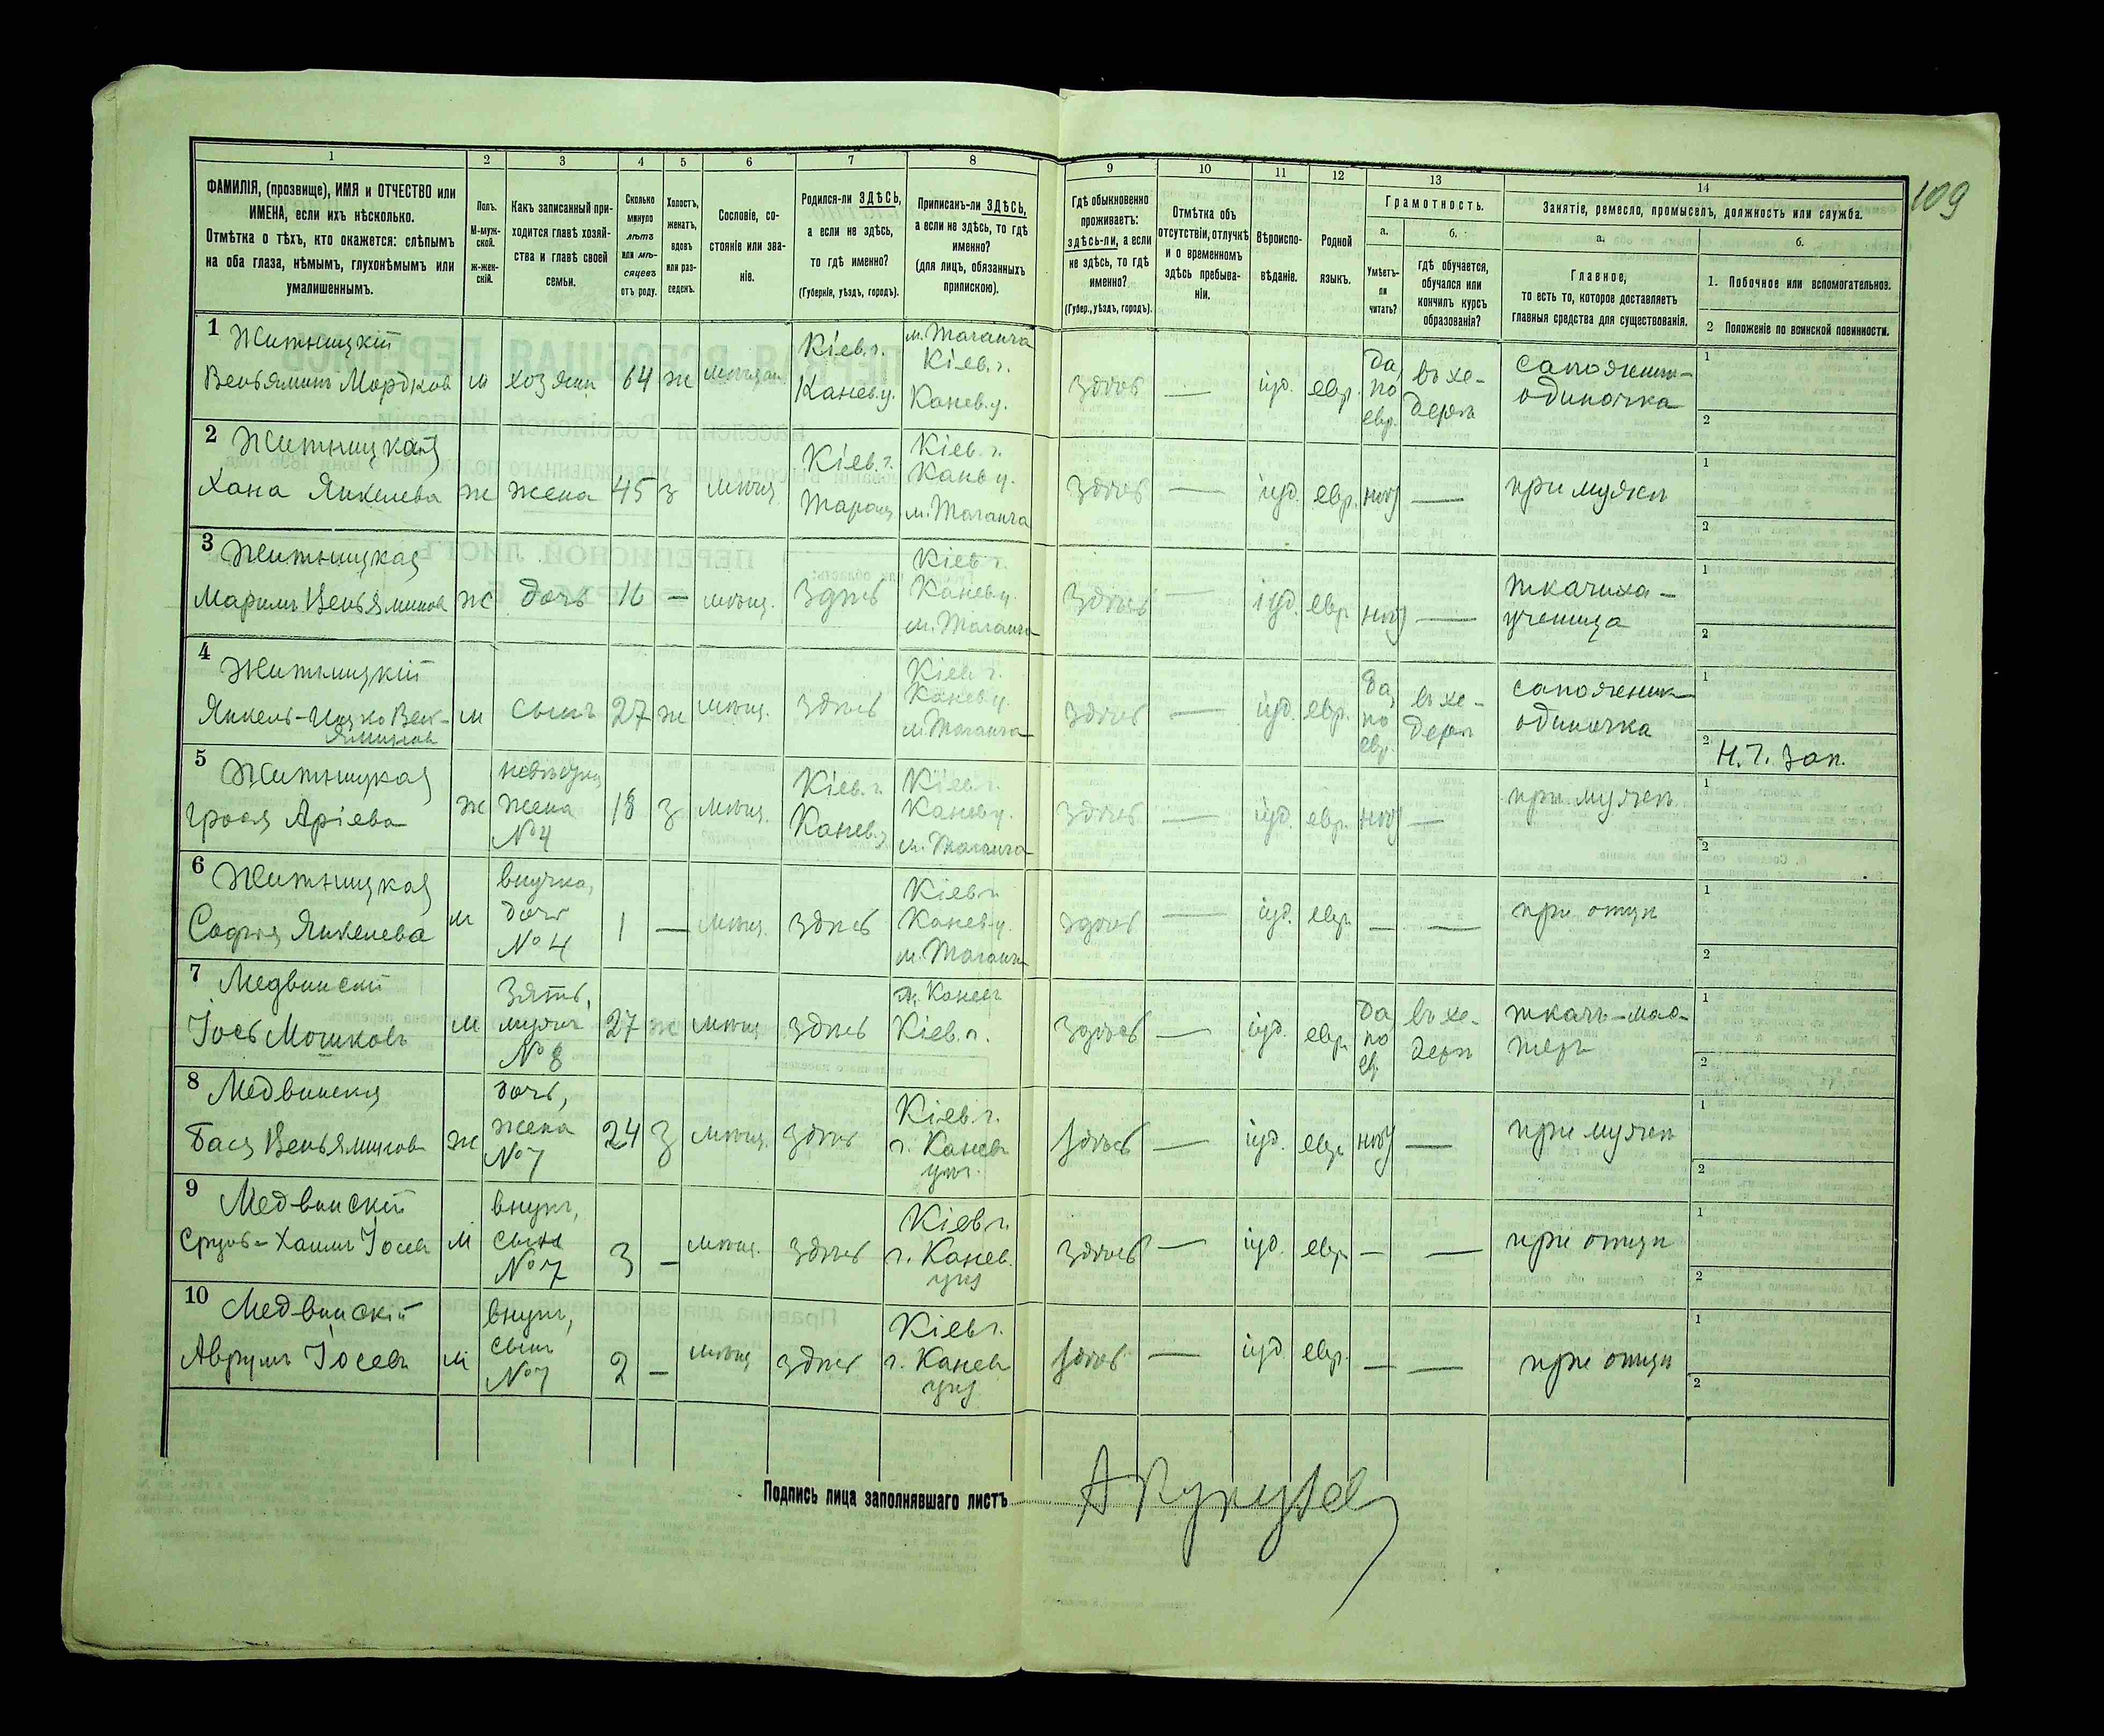 109
1 2 3 4 5 6 7 8 9 10 11 12 13 14
ФАМИЛІЯ, (прозвище), ИМЯ и ОТЧЕСТВО или
ИМЕНА, если ихъ нѣсколько.
Отмѣтка о тѣхъ, кто окажется: слѣпымъ
на оба глаза, нѣмымъ, глухонѣмымъ или
умалишеннымъ.
Полъ.
М-муж-
ской.
ж-жен-
скій.
Какъ записанный при-
ходится главѣ хозяй-
ства и главѣ своей
семьи.
Сколько
минуло
лѣтъ
или мѣ-
сяцевъ
отъ роду.
Холостъ,
женатъ,
вдовъ
или раз-
веденъ.
Сословіе, со-
стояніе или зва-
ніе.
Родился-ли ЗДѢСЬ,
а если не здѣсь,
то гдѣ именно?
(Губернія, уѣздъ, городъ).
Приписанъ-ли ЗДѢСЬ,
а если не здѣсь, то гдѣ
именно?
(для лицъ, обязанныхъ
припискою).
Гдѣ обыкновенно
проживаетъ:
здѣсь-ли, а если
не здѣсь, то гдѣ
именно?
(Губер., уѣздъ, городъ).
Отмѣтка объ
отсутствіи, отлучкѣ
и о временномъ
здѣсь пребыва-
ніи.
Вѣроиспо-
вѣданіе.
Родной
языкъ.
Грамотность.
а. б.
Умѣетъ-
ли
читать?
гдѣ обучается,
обучался или
кончилъ курсъ
образованія?
Занятіе, ремесло, промыселъ, должность или служба.
а. б.
Главное,
то есть то, которое доставляетъ
главныя средства для существованія.
1. Побочное или вспомогательное.
2 Положеніе по воинской повинности.
1 Житницкій
Веньяминъ Мордков м хозяин 64 ж мѣщан.
Кіев. г.
Канев. у.
м. Таганча
Кіев. г.
Канев. у.
здѣсь — іуд. евр.
Да
по
евр.
въ хе-
дерѣ
сапожник-
одиночка
1
2
2 Житницкая
Хана Янкелева ж жена 45 з мѣщ.
Кіев. г.
Таращ
Кіев. г.
Канев у.
м. Таганча
здѣсь — іуд. евр. нѣт — при мужѣ
1
2
3 Житницкая
Марим Веньяминов ж дочь 16 — мѣщ. здѣсь
Кіев г.
Канев у.
м. Таганча
здѣсь — іуд. евр нѣт —
ткачиха-
ученица
1
2
4 Житницкій
Янкель-Ицко Вен-
яминов
м сынъ 27 ж мѣщ. здѣсь
Кіев г.
Канев у.
м. Таганча
здѣсь — іуд. евр.
Да
по
евр.
въ хе-
дерѣ
сапожник-
одиночка
1
2 Н. 7. Зап.
5 Житницкая
Аріева ж
невѣстка,
жена
№ 4
18 з мѣщ.
Кіев. г.
Канев. у
Кіев. г.
Канев у.
м. Таганча
здѣсь — іуд. евр. нѣт — при мужѣ
1
2
6 Житницкая
Софья Янкелева м
внучка,
дочь
№ 4
1 — мѣщ. здѣсь
Кіев г.
Канев у.
м. Таганча
здѣсь — іуд. евр. — — при отцѣ
1
2
7 Медвинскій
Іось Мошковъ м
Зять,
мужъ
№ 8
27 ж мѣщ здѣсь
Канев
Кіев. г.
здѣсь — іуд. евр.
Да
по
евр.
въ хе-
дерѣ
ткачъ-мас-
теръ
1
2
8 Медвинская
Бася Веньяминов ж
дочь,
жена
№ 7
24 з мѣщ. здѣсь
Кіев г.
г. Канев
здѣсь — іуд. евр нѣт — при мужѣ
1
2
9 Медвинскій
Сруль-Хаим Іосев м
внукъ,
сынъ
№ 7
3 — мѣщ. здѣсь
Кіев г.
г. Канев.
здѣсь — іуд. евр — — при отцѣ
1
2
10 Медвинскій
Аврумъ Іосевъ м
внукъ,
сынъ
№ 7
2 — мѣщ здѣсь
Кіев г.
г. Канев
здѣсь — іуд евр. — — при отцѣ
1
2
Подпись лица заполнявшаго листъ